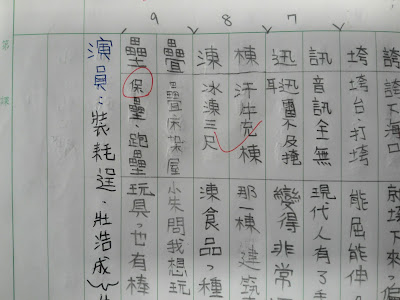 7
8
9
誇下海口
垮下來，偏
垮
垮台、打垮
能屈能伸
訊
音訊全無
現代人有了手
迅
迅雷不及掩耳
變得非常
棟
汗牛充棟
那一棟建築
凍
冰凍三尺
凍食品、種
疊
疊床架屋
小朱問我想玩
壘
保壘、跑壘
玩具，也有棒
演員：裝耗逞、壯浩成
第
課